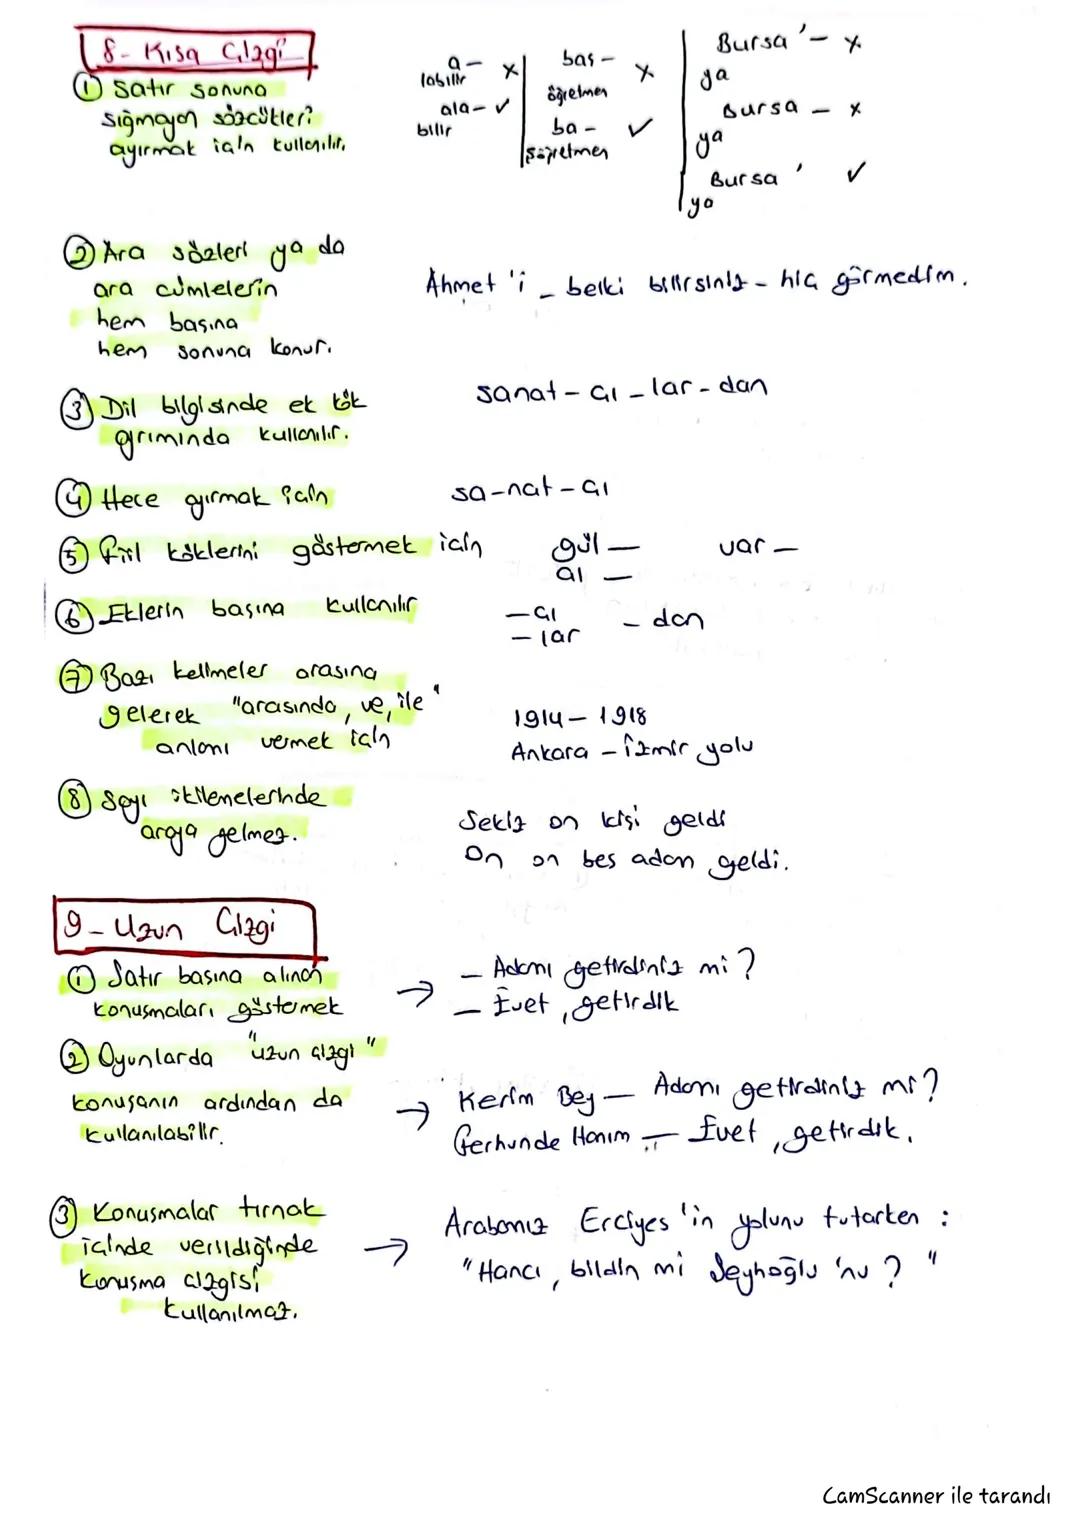 8- Kısa Çizgi
① Satır sonuna
sığmayan sözcükleri
ayırmak için kullanılır.
a- x
labilir
ala- ✓
bilir
baş- x
öğretmen
ba- ✓
şöğretmen
Bursa'- x
ya
Bursa - x
ya
Bursa' ✓
ya
② Ara sözleri ya da
ara cümlelerin
hem başına
hem sonuna konur.
Ahmet'i - belki bilirsiniz - hiç görmedim.
③ Dil bilgisinde ek kök
ayrımında kullanılır.
sanat-çı-lar-dan
④ Hece ayırmak için
sa-nat-çı
⑤ Fiil köklerini göstermek için
gül- var-
al-
⑥ Eklerin başına kullanılır
-çı -dan
-lar
⑦ Bazı kelimeler arasına
gelerek "arasında, ve, ile"
anlamı vermek için
1914-1918
Ankara-İzmir yolu
⑧ Sayı ikilemelerinde
araya gelmez.
Sekiz on kişi geldi
On on beş adam geldi.
9- Uzun Çizgi
① Satır başına alınan
konuşmaları göstermek
→ — Adamı getirdiniz mi?
— Evet, getirdik
② Oyunlarda "uzun çizgi"
konuşanın ardından da
kullanılabilir.
→ Kerim Bey — Adamı getirdiniz mi?
Ferhunde Hanım — Evet, getirdik.
③ Konuşmalar tırnak
içinde verildiğinde
konuşma çizgisi
kullanılmaz.
→ Arabamız Erciyes'in yolunu tutarken:
"Hancı, bildin mi Şeyhoğlu'nu?"
CamScanner ile tarandı